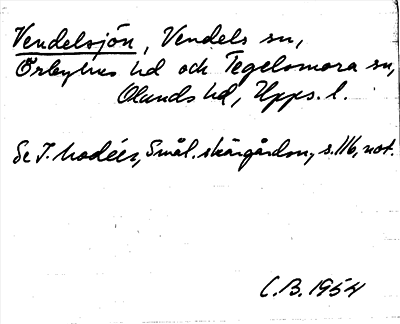 Vendelsjön, Vendels sn,
Örbyhus hd och Tegelsmora sn,
Olands hd, Upps. l.
Se I. Modéer, Smål. skärgården, s. 116, not.
C.B. 1954